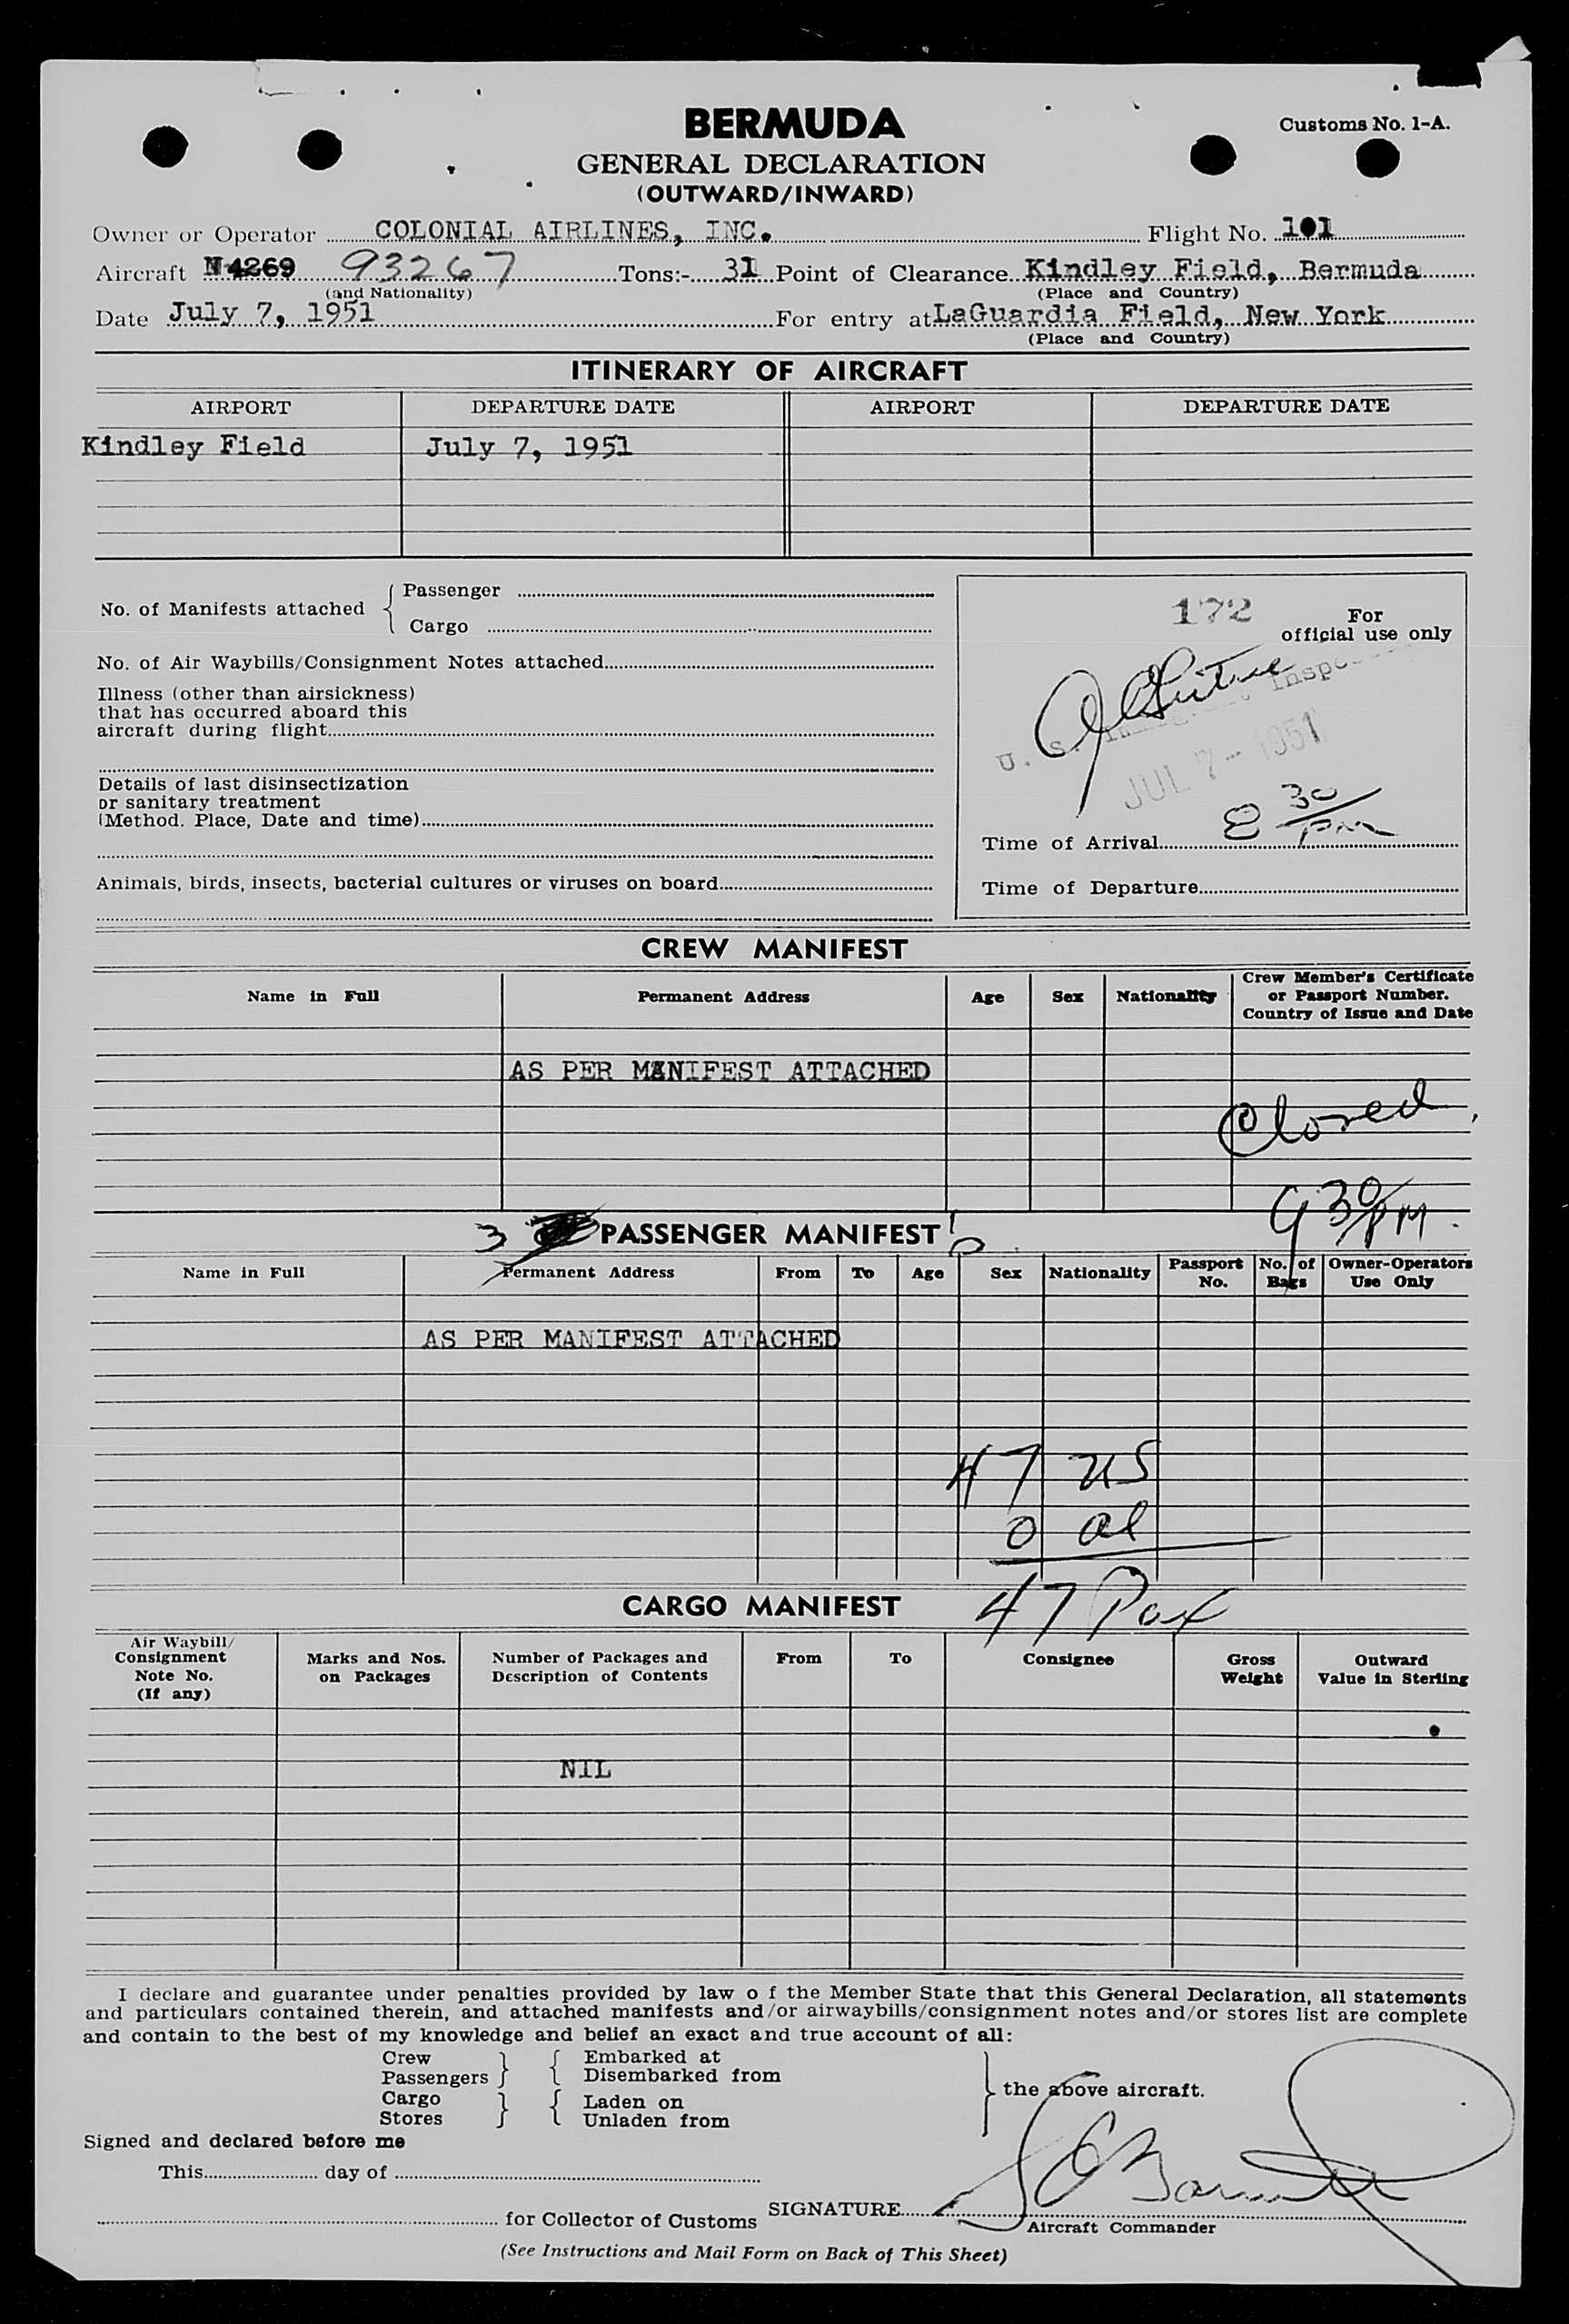 BERMUDA
Customs No. 1-A.
GENERAL DECLARATION
(OUTWARD/INWARD)
Owner or Operator COLONIAL AIRLINES, INC. Flight No. 101
Aircraft N4269 93267 Tons:- 31 Point of Clearance Kindley Field, Bermuda
(and Nationality) (Place and Country)
Date July 7, 1951 For entry at LaGuardia Field, New York
(Place and Country)
ITINERARY OF AIRCRAFT
AIRPORT DEPARTURE DATE AIRPORT DEPARTURE DATE
Kindley Field July 7, 1951
No. of Manifests attached { Passenger
Cargo
No. of Air Waybills/Consignment Notes attached
Illness (other than airsickness)
that has occurred aboard this
aircraft during flight
Details of last disinsectization
or sanitary treatment
(Method. Place, Date and time)
Animals, birds, insects, bacterial cultures or viruses on board
172 For
official use only
U. S.
JUL 7 - 1951
8 30/PM
Time of Arrival
Time of Departure
CREW MANIFEST
Name in Full Permanent Address Age Sex Nationality Crew Member's Certificate
or Passport Number.
Country of Issue and Date
AS PER MANIFEST ATTACHED
Closed
9 30/PM
3 PASSENGER MANIFEST
Name in Full Permanent Address From To Age Sex Nationality Passport No. No. of Bags Owner-Operators Use Only
AS PER MANIFEST ATTACHED
47 US
0 al
47 Pax
CARGO MANIFEST
Air Waybill/
Consignment
Note No.
(If any)
Marks and Nos.
on Packages
Number of Packages and
Description of Contents
From To Consignee
Gross
Weight
Outward
Value in Sterling
NIL
I declare and guarantee under penalties provided by law o f the Member State that this General Declaration, all statements
and particulars contained therein, and attached manifests and/or airwaybills/consignment notes and/or stores list are complete
and contain to the best of my knowledge and belief an exact and true account of all:
Crew } { Embarked at
Passengers } { Disembarked from
Cargo } { Laden on
Stores } { Unladen from
} the above aircraft.
Signed and declared before me
This day of
for Collector of Customs SIGNATURE
Aircraft Commander
(See Instructions and Mail Form on Back of This Sheet)